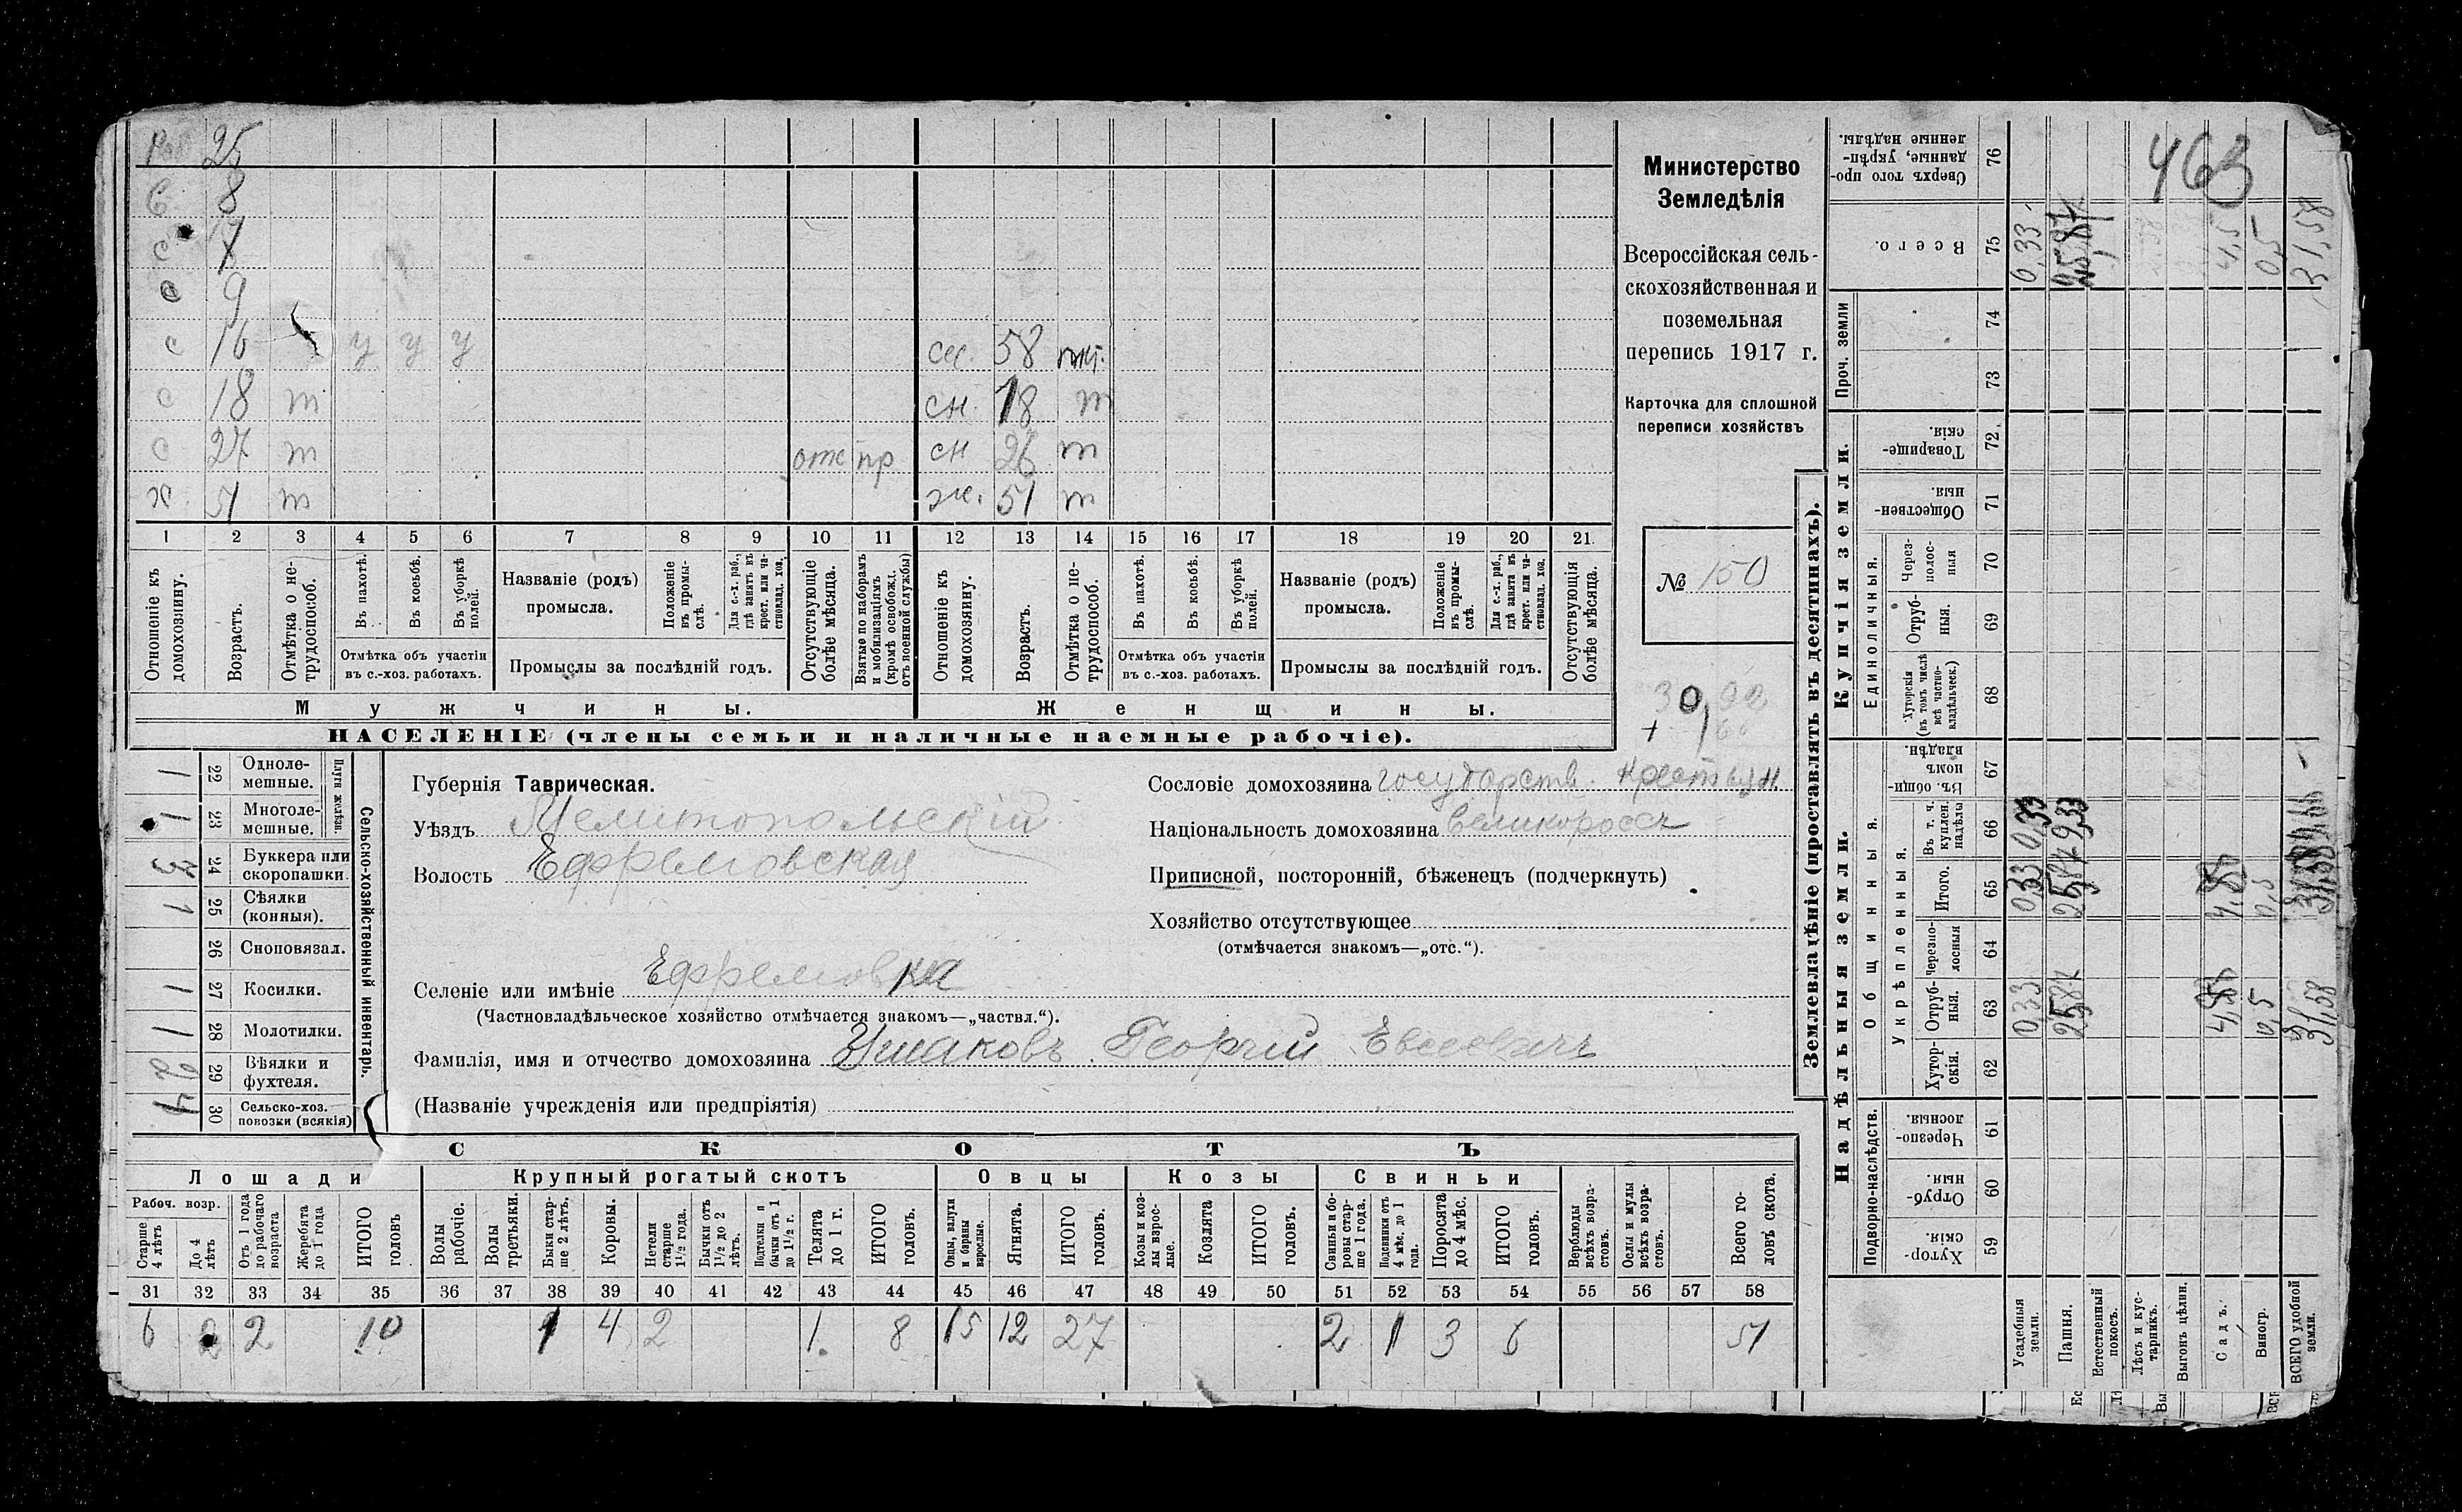 Министерство
Земледѣлія
Всероссійская сель-
скохозяйственная и
поземельная
перепись 1917 г.
Карточка для сплошной
переписи хозяйствъ
№ 150
463
25
С 8
с
с 9
с 16 у у у сн. 58 нт.
с 18 т сн. 18 т
с 27 т отс пр сн 26 т
х. 51 т ж. 51 т
1 2 3 4 5 6 7 8 9 10 11 12 13 14 15 16 17 18 19 20 21
Отношеніе къ домохозяину.
Возрастъ.
Отмѣтка о не-трудоспособ.
Въ пахотѣ.
Въ косьбѣ.
Въ уборкѣ полей.
Отмѣтка объ участіи
въ с.-хоз. работахъ.
Названіе (родъ)
промысла.
Положеніе въ промы-слѣ.
Для с.-х. раб., гдѣ занятъ въ крест. или ча-стновлад. хоз.
Промыслы за послѣдній годъ.
Отсутствующіе болѣе мѣсяца.
Взятые по наборамъ и мобилизаціямъ (кромѣ освобожд. отъ военной службы)
Отношеніе къ домохозяину.
Возрастъ.
Отмѣтка о не-трудоспособ.
Въ пахотѣ.
Въ косьбѣ.
Въ уборкѣ полей.
Отмѣтка объ участіи
въ с.-хоз. работахъ.
Названіе (родъ)
промысла.
Положеніе въ промы-слѣ.
Для с.-х. раб., гдѣ занята въ крест. или ча-стновлад. хоз.
Промыслы за послѣдній годъ.
Отсутствующія болѣе мѣсяца.
Мужчины.
Женщины.
НАСЕЛЕНІЕ (члены семьи и наличные наемные рабочіе).
Сельско-хозяйственный инвентарь.
Плуги желѣзн.
1 22 Одноле-мешные.
1 23 Многоле-мешные.
3 24 Буккера или скоропашки.
1 25 Сѣялки (конныя).
26 Сноповязал.
1 27 Косилки.
1 28 Молотилки.
2 29 Вѣялки и фухтеля.
4 30 Сельско-хоз. повозки (всякія)
Губернія Таврическая.
Уѣздъ Мелитопольскій
Волость Ефремовская
Сословіе домохозяина государств. крестьян.
Національность домохозяина великороссъ
Приписной, посторонній, бѣженецъ (подчеркнуть)
Хозяйство отсутствующее
(отмѣчается знакомъ—„отс.“).
Селеніе или имѣніе Ефремовка
(Частновладѣльческое хозяйство отмѣчается знакомъ—„частвл.“).
Фамилія, имя и отчество домохозяина Ушаковъ Георгий Евсеевичъ
(Названіе учрежденія или предпріятія)
СКОТЪ
Лошади Крупный рогатый скотъ Овцы Козы Свиньи
Рабоч. возр.
Старше 4 лѣтъ
До 4 лѣтъ
Отъ 1 года до рабочаго возраста
Жеребята до 1 года
ИТОГО головъ
Волы рабочіе.
Волы третьяки.
Быки стар-ше 2 лѣтъ.
Коровы.
Нетели старше 1½ года.
Бычки отъ 1½ до 2 лѣтъ.
Подтелки и бычки отъ 1 до 1½ г.
Телята до 1 г.
ИТОГО головъ.
Овцы, валухи и бараны взрослые.
Ягнята.
ИТОГО головъ.
Козы и коз-лы взрос-лые.
Козлята
ИТОГО головъ.
Свиньи и бо-ровы стар-ше 1 года.
Подсвинки отъ 4 мѣс. до 1 года.
Поросята до 4 мѣс.
ИТОГО головъ.
Верблюды всѣхъ возра-стовъ.
Ослы и мулы всѣхъ возра-стовъ.
Всего го-ловъ скота.
31 32 33 34 35 36 37 38 39 40 41 42 43 44 45 46 47 48 49 50 51 52 53 54 55 56 57 58
6 2 2 10 1 4 2 1 8 15 12 27 2 1 3 6 51
Землевладѣніе (проставлять въ десятинахъ).
Надѣльныя земли.
Купчія земли.
Проч. земли
Подворно-наслѣдств.
Общинныя.
Укрѣпленныя.
Единоличныя.
Хутор-скія. 59
Отруб-ныя. 60
Черезпо-лосныя. 61
Хутор-скія. 62
Отруб-ныя. 63
Черезпо-лосныя 64
Итого. 65
Въ т. ч. куплен. надѣлы 66
Въ общин-номъ владѣн. 67
Хуторскія (въ томъ числѣ всѣ частно-владѣльческ.) 68
Отруб-ныя. 69
Через-полос-ныя 70
Обществен-ныя. 71
Товарище-скія. 72
73
74
Всего. 75
Сверхъ того про-данные, укрѣп-ленные надѣлы. 76
Усадебныя земли. 0,33 0,33 0,33
Пашня.
Естественный покосъ.
Лѣсъ и кус-тарникъ.
Выгонъ цѣлин.
Садъ.
Виногр. 0,5 0,5 0,5
ВСЕГО удобной земли. 31,58 31,58 31,58